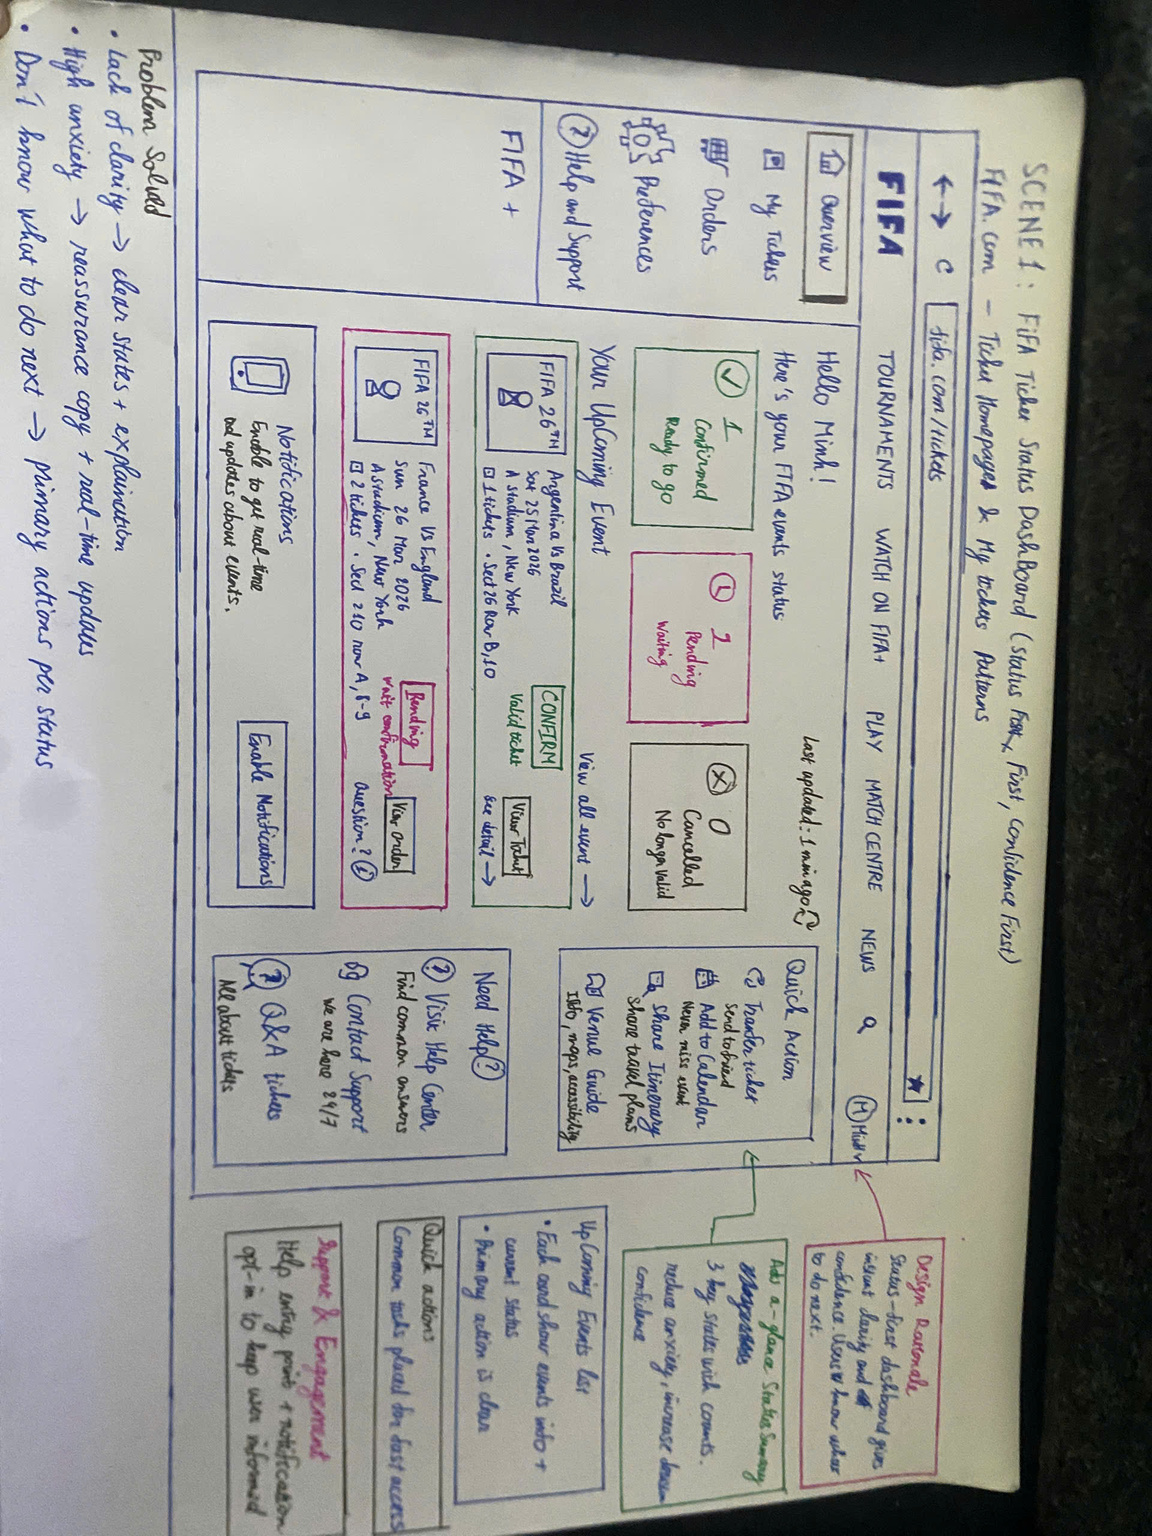 SCENE 1: FiFA Ticket Status DashBoard (Status First, Confidence First)
FIFA.com - Ticket Homepages & My tickets Patterns
fifa.com/tickets
FIFA
TOURNAMENTS
WATCH ON FIFA+
PLAY
MATCH CENTRE
NEWS
M
Overview
My Tickets
Orders
Preferences
? Help and Support
FIFA +
Hello Minh!
Here's your FIFA events status
Last updated: 1 min ago
1
Confirmed
Ready to go
1
Pending
Waiting
0
Cancelled
No longer valid
Your UpComing Event
View all event →
FIFA 26™
Argentina Vs Brazil
Sat 25 Mar 2026
A Stadium, New York
1 tickets · Sect 26 Row B, 10
CONFIRM
Valid ticket
View Ticket
see detail →
FIFA 26™
France Vs England
Sun 26 Mar 2026
A Stadium, New York
2 tickets · Sect 210 row A, 8-9
Pending
wait confirmation
View order
Question? i
Notifications
Enable to get real-time
and updates about events.
Enable Notifications
Quick Action
Transfer ticket
send to friend
Add to Calendar
Never miss event
Share Itinerary
share travel plans
Venue Guide
Info, maps, accessibility
Need Help?
? Visit Help Center
Find common answers
Contact Support
we are here 24/7
? Q&A tickets
All about tickets
Design Rationale
Status-first dashboard gives
instant clarity and
confidence. Users know what
to do next.
a-glance Status Summary
3 key states with counts.
reduce anxiety, increase
confidence
UpComing Events list
• Each card show events info +
current status
• Primary action is clear
Quick actions
Common tasks placed for fast access
Support & Engagement
Help entry point + notification
opt-in to keep user informed
Problem Solved
• Lack of clarity → clear states + explaination
• High anxiety → reassurance copy + real-time updates
• Don't know what to do next → primary actions per status